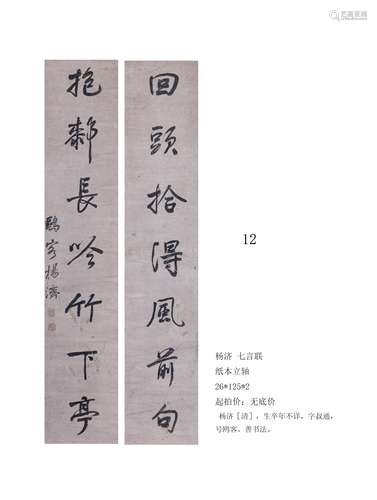 回頭拾得風前句
抱厀長吟竹下亭
鷗客楊濟
12
杨济 七言联
纸本立轴
26*125*2
起拍价：无底价
杨济［清］，生卒年不详，字叔通，
号鸥客，善书法。